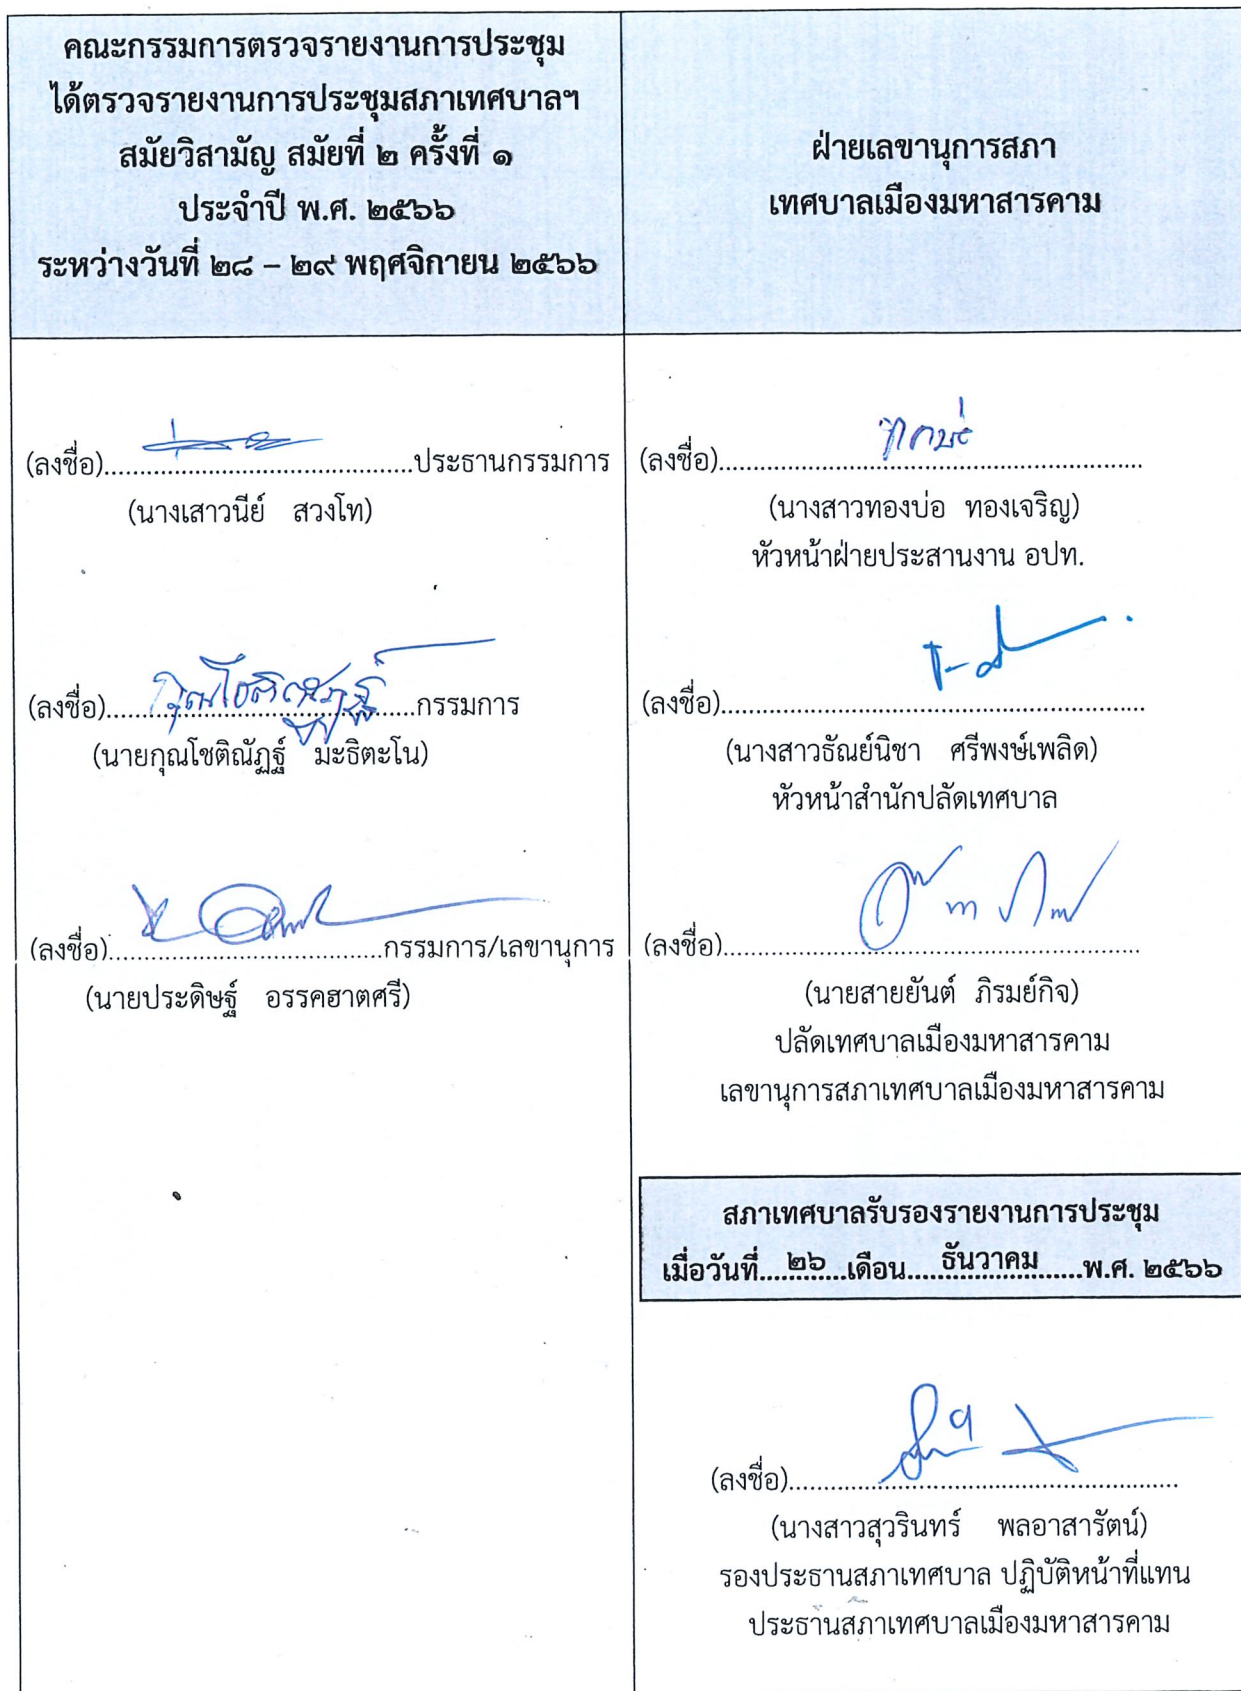 คณะกรรมการตรวจรายงานการประชุม
ได้ตรวจรายงานการประชุมสภาเทศบาลฯ
สมัยวิสามัญ สมัยที่ ๒ ครั้งที่ ๑
ประจำปี พ.ศ. ๒๕๖๖
ระหว่างวันที่ ๒๘ – ๒๙ พฤศจิกายน ๒๕๖๖
(ลงชื่อ)..........................................ประธานกรรมการ
(นางเสาวนีย์ สวงโท)
(ลงชื่อ)..........................................กรรมการ
(นายกุณโชติณัฏฐ์ มะธิตะโน)
(ลงชื่อ)......................................กรรมการ/เลขานุการ
(นายประดิษฐ์ อรรคฮาตศรี)
ฝ่ายเลขานุการสภา
เทศบาลเมืองมหาสารคาม
(ลงชื่อ)..........................................................
(นางสาวทองบ่อ ทองเจริญ)
หัวหน้าฝ่ายประสานงาน อปท.
(ลงชื่อ)..........................................................
(นางสาวธัณย์นิชา ศรีพงษ์เพลิด)
หัวหน้าสำนักปลัดเทศบาล
(ลงชื่อ)..........................................................
(นายสายยันต์ ภิรมย์กิจ)
ปลัดเทศบาลเมืองมหาสารคาม
เลขานุการสภาเทศบาลเมืองมหาสารคาม
สภาเทศบาลรับรองรายงานการประชุม
เมื่อวันที่....๒๖....เดือน.....ธันวาคม......พ.ศ. ๒๕๖๖
(ลงชื่อ)......................................................
(นางสาวสุวรินทร์ พลอาสารัตน์)
รองประธานสภาเทศบาล ปฏิบัติหน้าที่แทน
ประธานสภาเทศบาลเมืองมหาสารคาม